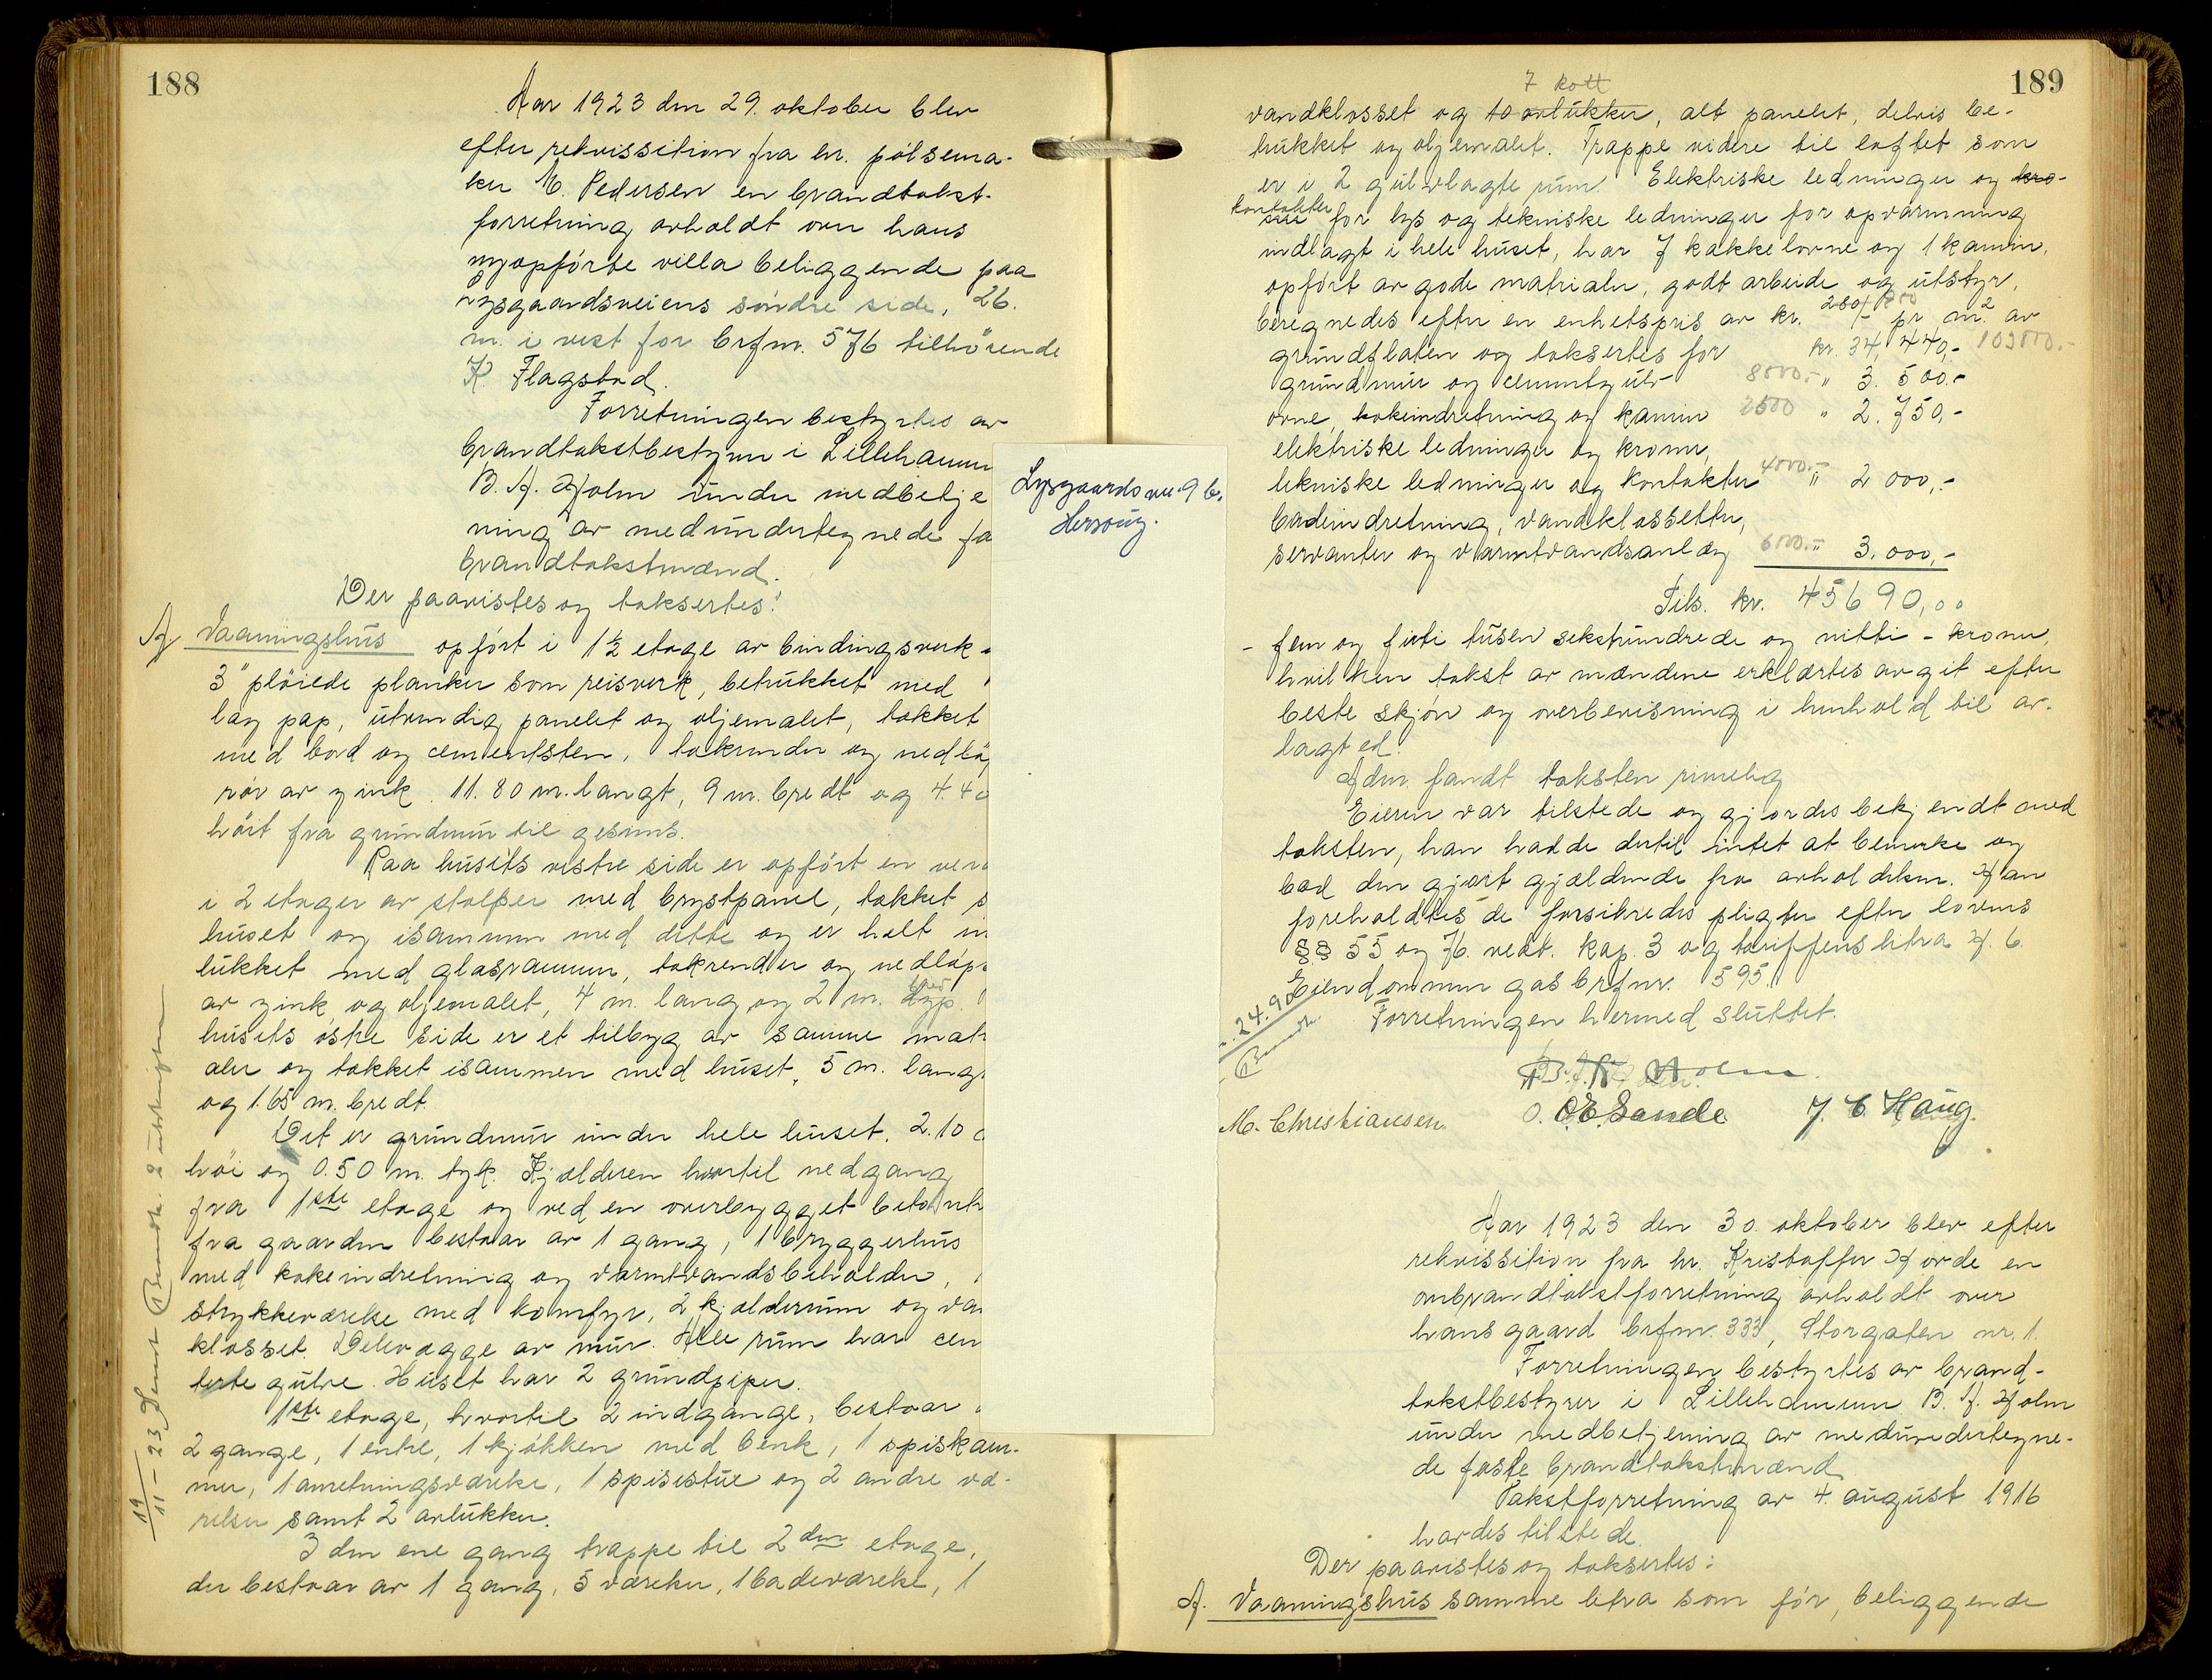 188
Aar 1923 den 29. oktober blev
efter rekvissition fra hr. pölsema-
ker M. Pedersen en brandtakst-
forretning avholdt over hans
nyopförte villa beliggende paa
Lysgaardsveiens söndre side, 26.
m. i vest for brfnr. 576 tilhörende
K. Flagstad.
Forretningen bestyrtes av
brandtakstbestyrer i Lillehamm
B. A. Holm under medbetje
ning av medundertegnede fa
brandtakstmænd.
Der paavistes og taksertes:
A. Vaaningshus opfört i 1½ etage av bindingsverk
3" plöiede planker som reisverk, betrukket med
lag pap, utvendig panelet og oljemalet, takket
med bord og cementsten, takrender og nedlö
rör av zink. 11.80 m. langt, 9 m. bredt og 4.40
höit fra grundmur til gesims.
Paa husets vestre side er opfört en vera
i 2 etager av stolper med brystpanel, takket s
huset og isammen med dette og er helt in
lukket med glasrammer, takrender og nedlöps
av zink og oljemalet, 4 m. lang og 2 m. dyp. bred
husets östre side er et tilbyg av samme mat
aler og takket isammen med huset, 5 m. lang
og 1.65 m. bredt.
Det er grundmur under hele huset, 2.10
höi og 0.50 m. tyk. Kjælderen hvortil nedgang
fra 1ste etage og ved en overbygget betontr
fra gaarden bestaar av 1 gang, 1 bryggerhus
med kokeindretning og varmtvandsbeholder,
strykkeværelse med komfyr, 2 kjælderrum og va
klosset. Delevægge av mur. Alle rum har cem
terte gulve. Huset har 2 grundpiper.
1ste etage, hvortil 2 indgange, bestaar
2 gange, 1 entre, 1 kjökken med benk, 1 spiskam-
mer, 1 anretningsværelse, 1 spisestue og 2 andre væ-
relser samt 2 avlukker.
I den ene gang trappe til 2den etage,
der bestaar av 1 gang, 5 værelser, 1 badeværelse, 1
19/11 - 23 Sendt Brandk. 2 utskrifter
Lysgaardsvei. 9 b.
Hersoug.
189
7 kott
vandklosset og 10 avlukker, alt panelet, delvis be-
trukket og oljemalet. Trappe videre til loftet som
er i 2 gulvlagte rum. Elektriske ledninger og kro-
kontakter
for lys og tekniske ledninger for opvarmning
indlagt i hele huset, har 7 kakkelovne og 1 kamin,
opfört av gode matrialer, godt arbeide og utstyr,
beregnedes efter en enhetspris av kr. 280/- pr m.² av
grundflaten og taksertes for kr. 34,440,- 103000.-
grundmur og cementgulv 8000.- " 3.500.-
ovne, kokeindretning og kamin 2500 " 2.750,-
elektriske ledninger og kroner,
tekniske ledninger og kontakter 4000.- " 2 000,-
badeindretning, vandklossetter,
servanter og varmtvandsanlæg 6000.- " 3.000,-
Tils. kr. 45690,00
- fem og firti tusen sekshundrede og nitti - kroner,
hvilken takst av mændene erklærtes avgit efter
beste skjön og overbevisning i henhold til av-
lagt ed.
Adm. fandt taksten rimelig
Eieren var tilstede og gjordes bekjendt med
taksten, han hadde dertil intet at bemerke og
bad den gjort gjældende fra avholdelsen. Han
foreholdtes de forsikredes pligter efter lovens
§§ 55 og 76. vedt. kap. 3 og tariffens litra H. 6.
Eiendommen gas brfnr. 595.
. 24.90
Brandk.
Forretningen hermed sluttet.
B. A. Holm.
M. Christiansen. O. E. Sande J. E. Haug.
Aar 1923 den 30. oktober blev efter
rekvissition fra hr. Kristoffer Horde en
ombrandtakstforretning avholdt over
hans gaard brfnr. 333, Storgaten nr. 1.
Forretningen bestyrtes av brand-
takstbestyrer i Lillehammer B. A. Holm
under medbetjening av medundertegne-
de faste brandtakstmænd.
Takstforretning av 4. august 1916
havdes tilstede.
Der paavistes og taksertes:
A. Vaaningshus samme litra som för, beliggende